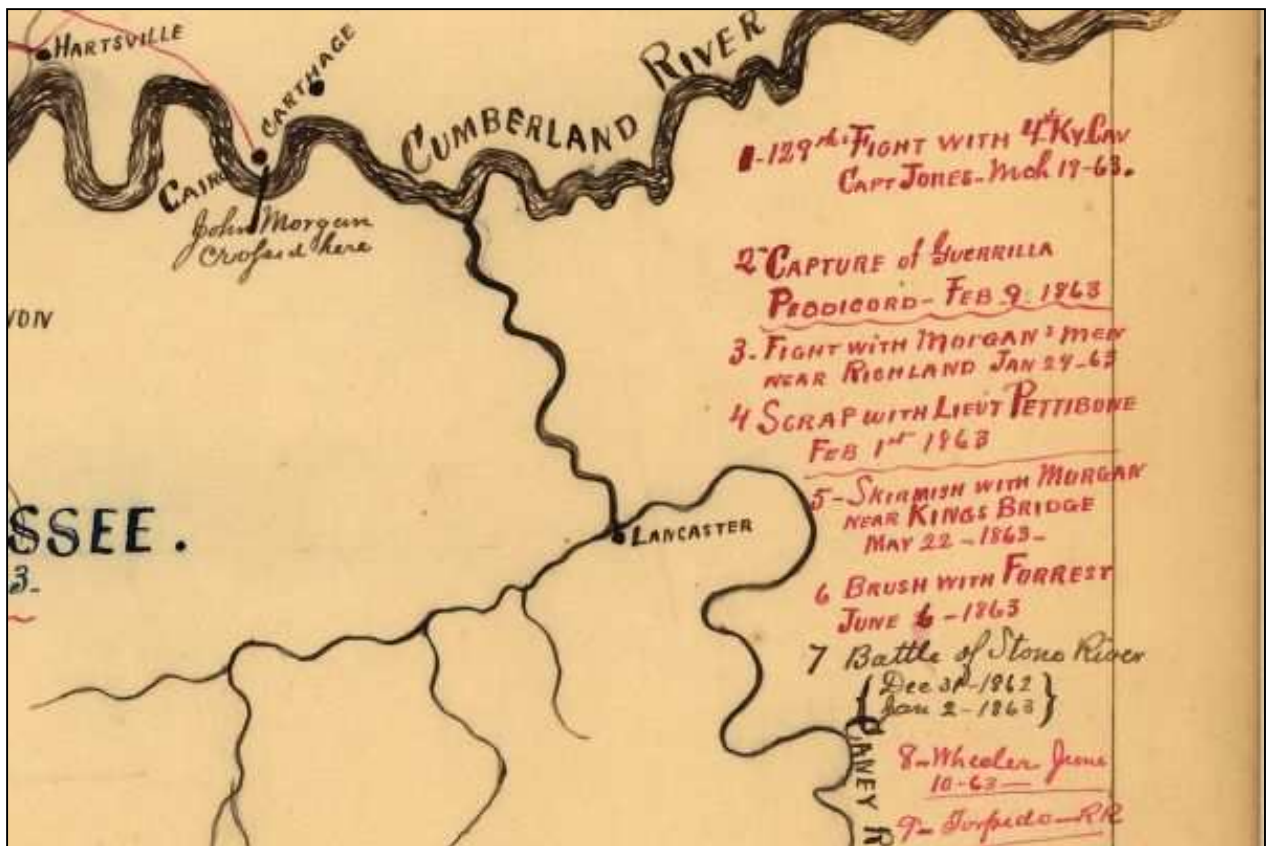 HARTSVILLE
CARTHAGE
CUMBERLAND RIVER
John Morgan
Crossed here
SSEE.
3-
LANCASTER
CANEY
1-129th FIGHT WITH 4th KY CAV
CAPT JONES - Mch 19-63.
2- CAPTURE of GUERRILLA
PEDDICORD - FEB 9 1863
3- FIGHT WITH MORGAN'S MEN
NEAR RICHLAND JAN 29-63
4 SCRAP WITH LIEUT PETTIBONE
FEB 1st 1863
5- SKIRMISH WITH MORGAN
NEAR KINGS BRIDGE
MAY 22 - 1863-
6 BRUSH WITH FORREST
JUNE 6 - 1863
7 Battle of Stone River
Dec 31-1862
Jan 2-1863
8- Wheeler June
10-63-
9- Torpedo-RR